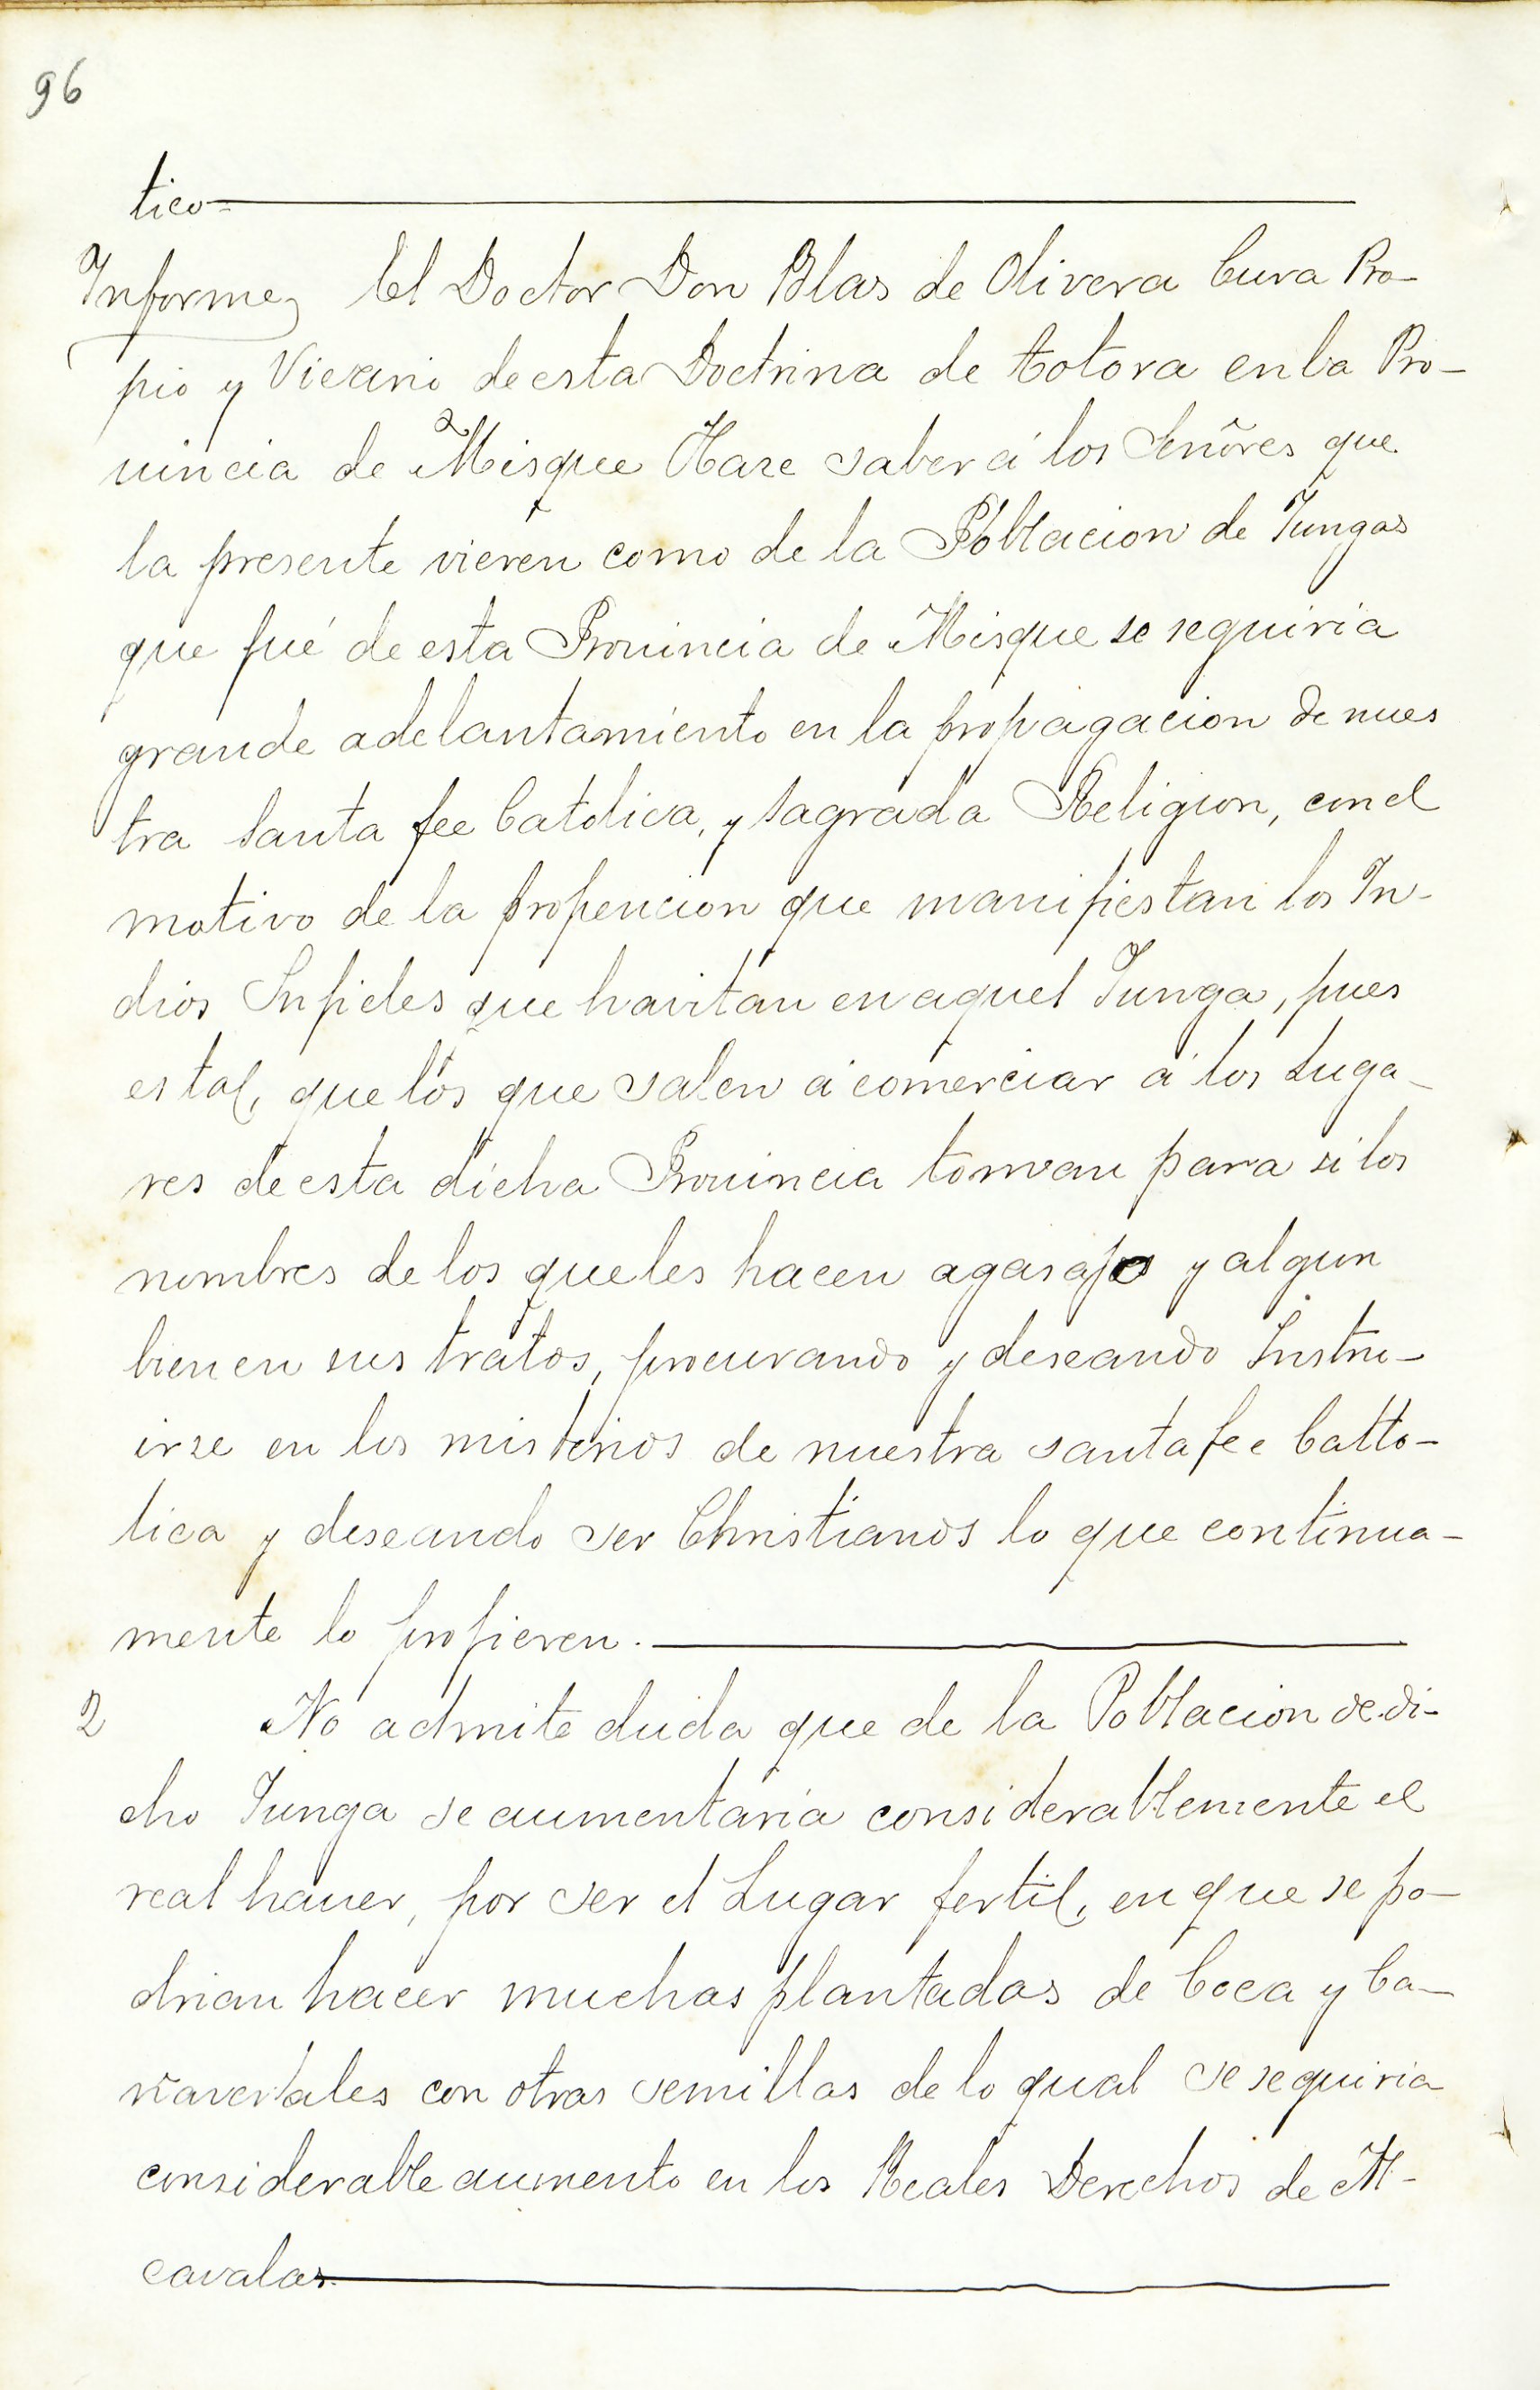 96
tico=
Informe El Doctor Don Blas de Olivera Cura Pro-
pio y Vicario de esta Doctrina de totora en la Pro-
uincia de Misque Hase saber á los Señores que
la presente vieren como de la Poblacion de Yungas
que fué de esta Prouincia de Misque se seguiria
grande adelantamiento en la propagacion de nues
tra Santa fee Catolica, y Sagrada Religion, con el
motivo de la propencion que manifiestan los In-
dios Infieles que havitan en aquel Yunga, pues
es tal, que los que salen á comerciar á los Luga-
res de esta dicha Prouincia toman para si los
nombres de los que les hacen agasajos y algun
bien en sus tratos, procurando y deseando Instru-
irse en los misterios de nuestra santa fee Catto-
lica y deseando ser Christianos lo que continua-
mente lo profieren.
2 No admite duda que de la Poblacion de di-
cho Yunga se aumentaria considerablemente el
real hauer, por ser el Lugar fertil, en que se po-
drian hacer muchas plantadas de Coca y Ca-
ñaverales con otras semillas de lo qual se seguiria
considerable aumento en los Reales Derechos de Al-
cavalas.